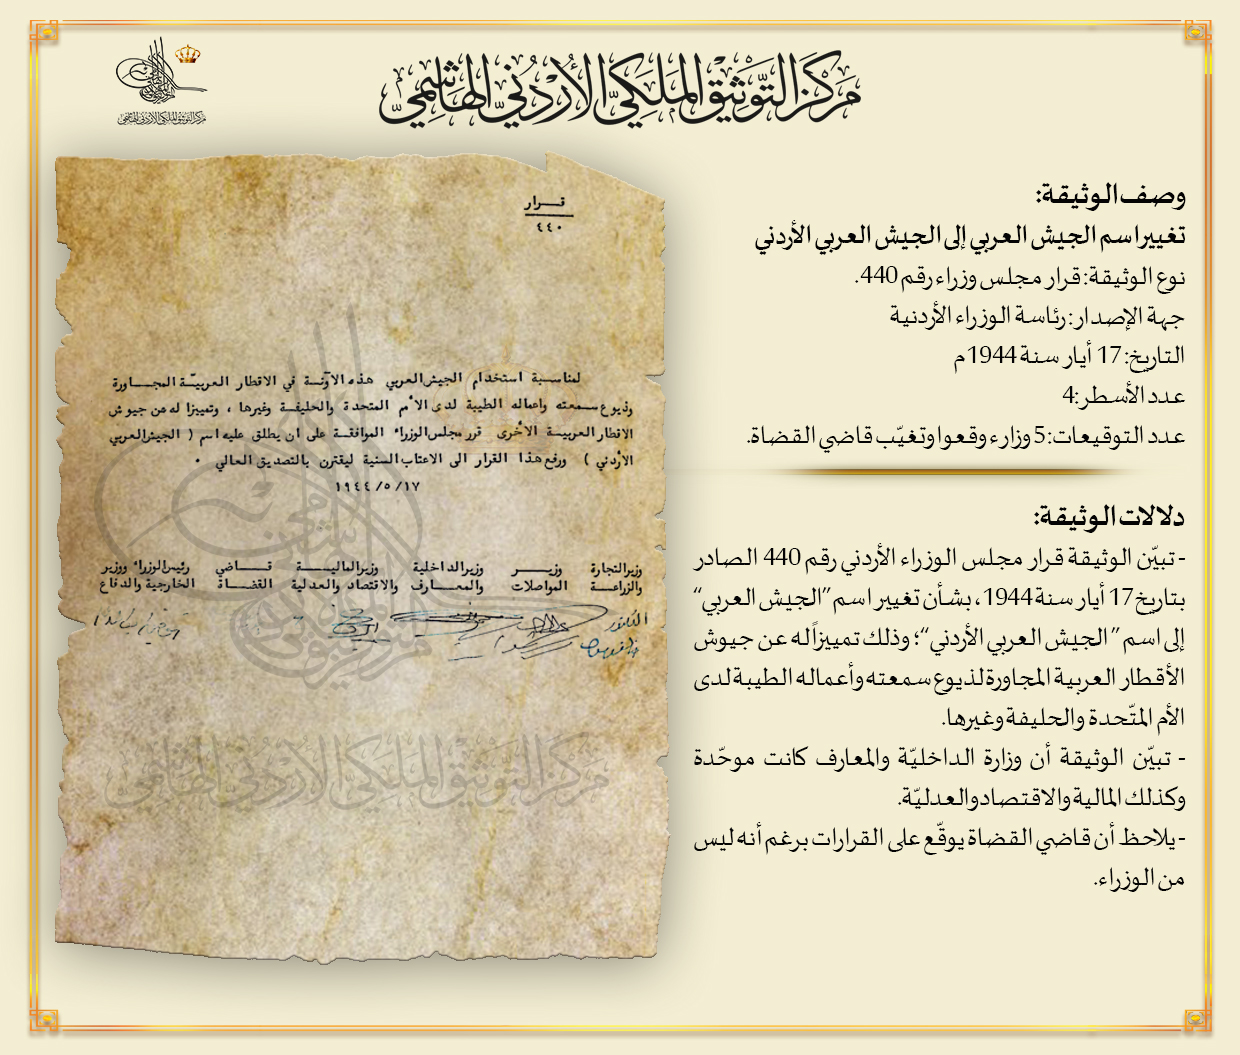 مركز التوثيق الملكي الأردني الهاشمي
مركز التوثيق الملكي الأردني الهاشمي
وصف الوثيقة:
تغيير اسم الجيش العربي إلى الجيش العربي الأردني
نوع الوثيقة: قرار مجلس وزراء رقم 440.
جهة الإصدار: رئاسة الوزراء الأردنية
التاريخ: 17 أيار سنة 1944م
عدد الأسطر: 4
عدد التوقيعات: 5 وزارء وقعوا وتغيّب قاضي القضاة.
دلالات الوثيقة:
- تبيّن الوثيقة قرار مجلس الوزراء الأردني رقم 440 الصادر
بتاريخ 17 أيار سنة 1944، بشأن تغيير اسم "الجيش العربي"
إلى اسم " الجيش العربي الأردني"؛ وذلك تمييزاً له عن جيوش
الأقطار العربية المجاورة لذيوع سمعته وأعماله الطيبة لدى
الأم المتّحدة والحليفة وغيرها.
- تبيّن الوثيقة أن وزارة الداخليّة والمعارف كانت موحّدة
وكذلك المالية والاقتصاد والعدليّة.
- يلاحظ أن قاضي القضاة يوقّع على القرارات برغم أنه ليس
من الوزراء.
قرار
٤٤٠
لمناسبة استخدام الجيش العربي هذه الآونة في الاقطار العربيّة المجاورة
وذيوع سمعته واعماله الطيبة لدى الأم المتحدة والحليفة وغيرها ، وتمييزا له من جيوش
الاقطار العربية الأخرى قرر مجلس الوزراء الموافقة على ان يطلق عليه اسم ( الجيش العربي
الأردني ) ورفع هذا القرار الى الاعتاب السنية ليقترن بالتصديق العالي .
١٩٤٤/٥/١٧
وزير التجارة وزير وزير الداخلية وزير المالية قاضي رئيس الوزراء ووزير
والزراعة المواصلات والمعارف والاقتصاد والعدلية القضاة الخارجية والدفاع
مركز التوثيق الملكي الأردني الهاشمي